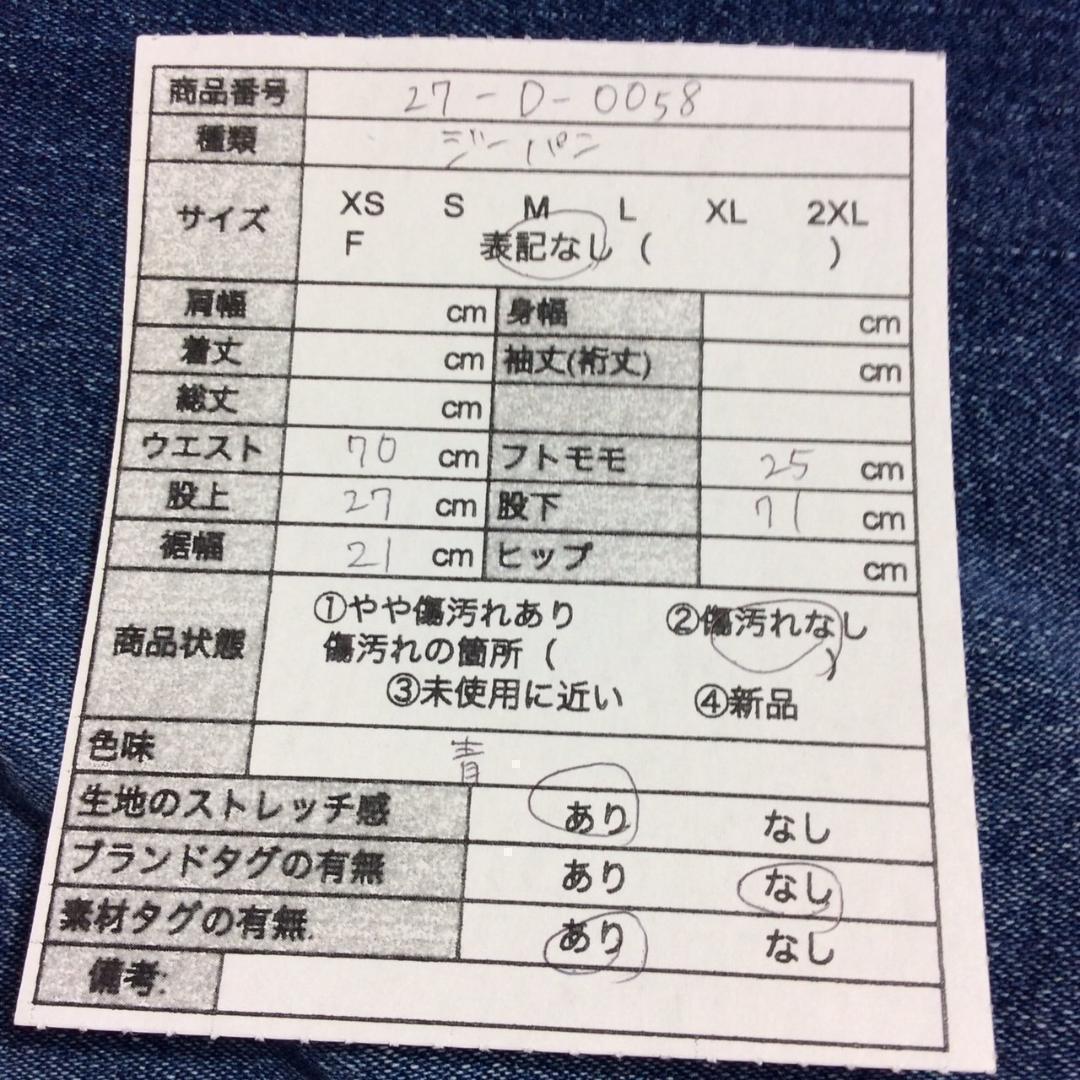 商品番号 27-D-0058
種類 ジーパン
サイズ XS S M L XL 2XL
F 表記なし ( )
肩幅 cm 身幅 cm
着丈 cm 袖丈(裄丈) cm
総丈 cm
ウエスト 70 cm フトモモ 25 cm
股上 27 cm 股下 71 cm
裾幅 21 cm ヒップ cm
商品状態 ①やや傷汚れあり ②傷汚れなし
傷汚れの箇所 ( )
③未使用に近い ④新品
色味 青
生地のストレッチ感 あり なし
ブランドタグの有無 あり なし
素材タグの有無. あり なし
備考: